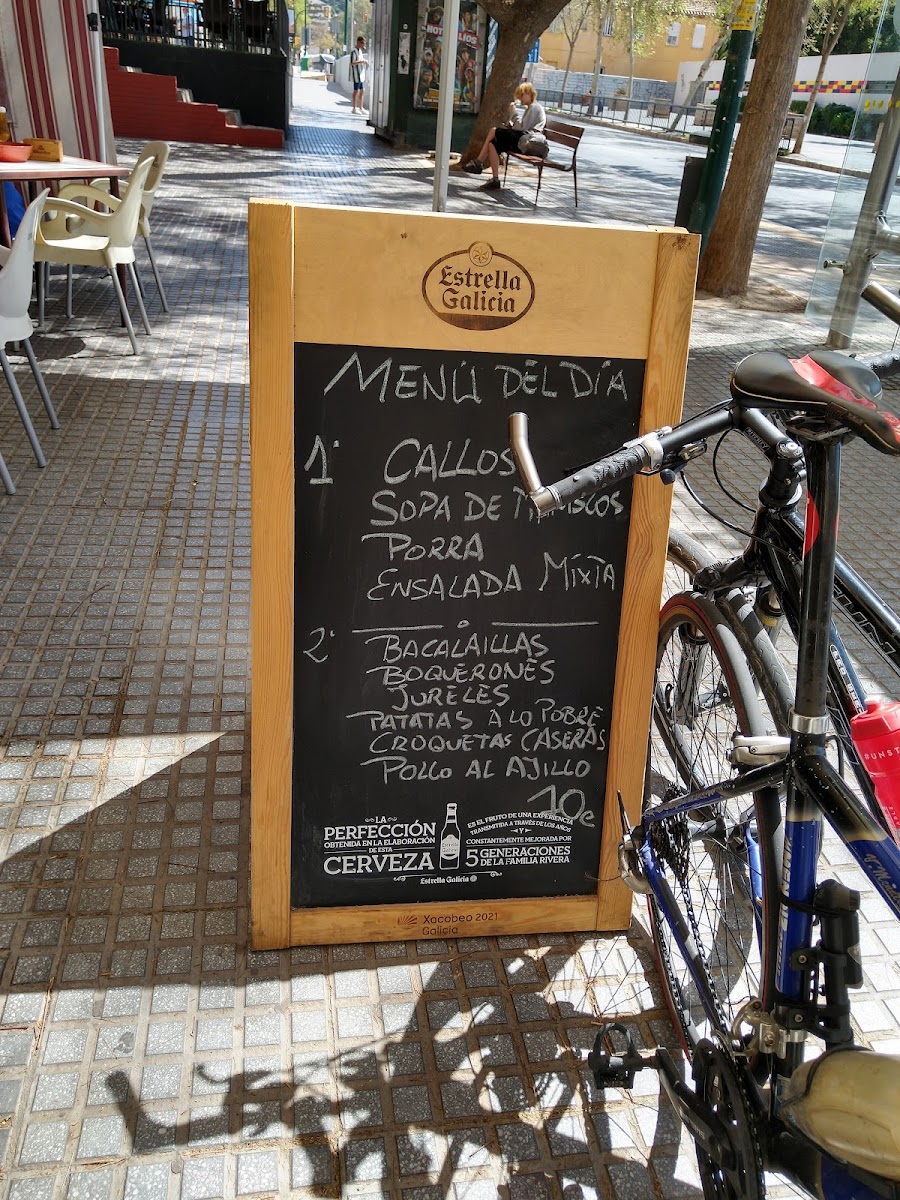 Estrella
Galicia
MENÚ DEL DÍA
1º CALLOS
SOPA DE MARISCOS
PORRA
ENSALADA MIXTA
2º BACALAILLAS
BOQUERONES
JURELES
PATATAS A LO POBRE
CROQUETAS CASERAS
POLLO AL AJILLO
10€
LA
PERFECCIÓN
OBTENIDA EN LA ELABORACIÓN
DE ESTA
CERVEZA
ES EL FRUTO DE UNA EXPERIENCIA
TRANSMITIDA A TRAVÉS DE LOS AÑOS
Y
CONSTANTEMENTE MEJORADA POR
5 GENERACIONES
DE LA FAMILIA RIVERA
Estrella Galicia
Xacobeo 2021
Galicia
SUNST